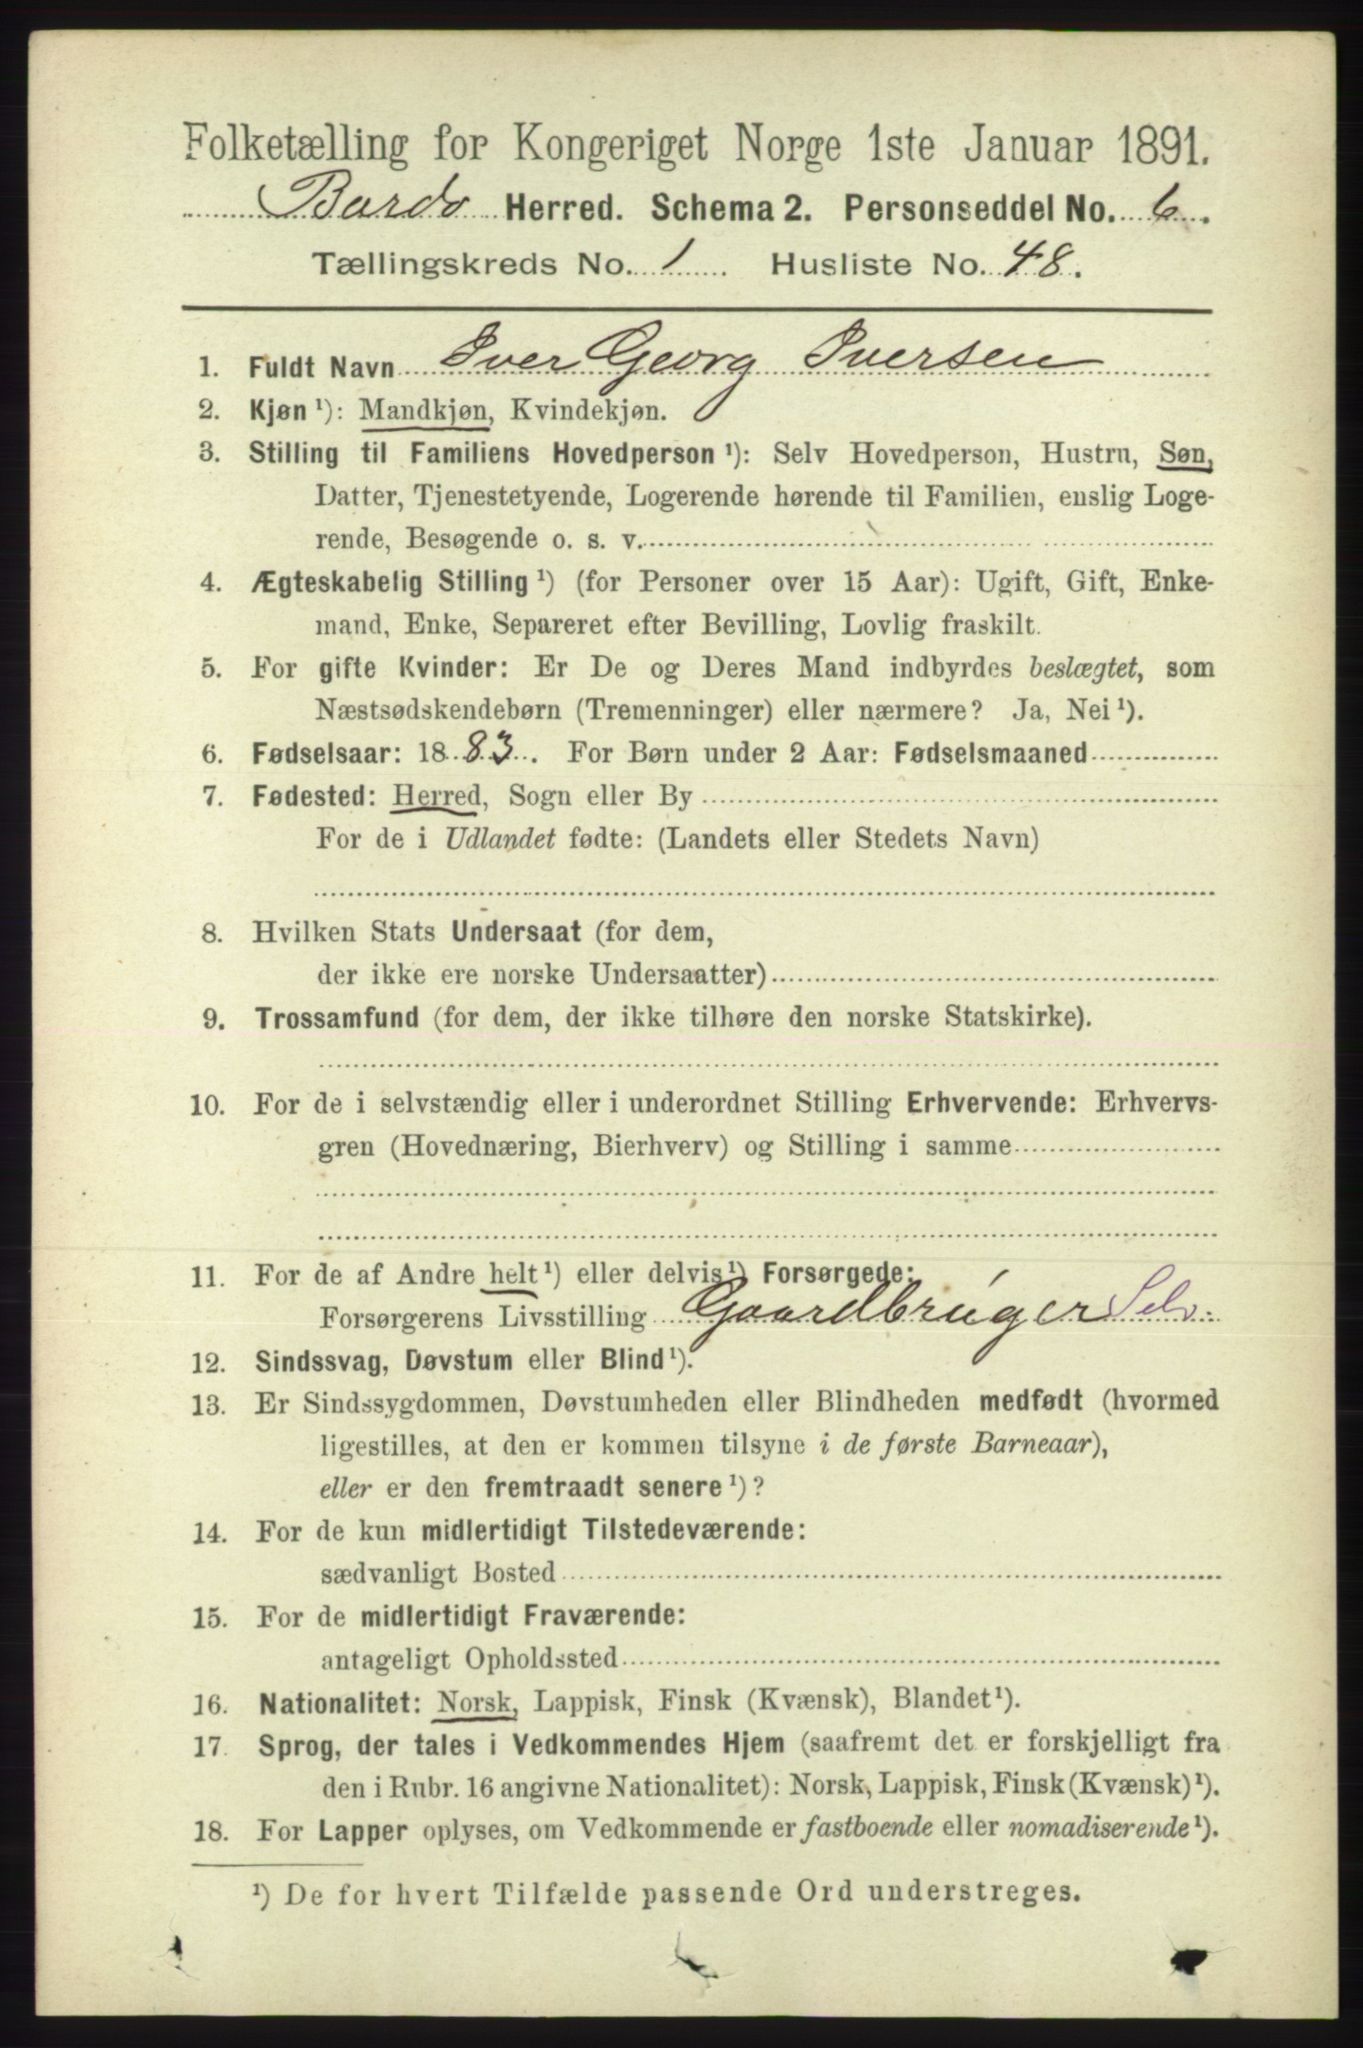 Folketælling for Kongeriget Norge 1ste Januar 1891.
Bardo Herred. Schema 2. Personseddel No. 6.
Tællingskreds No. 1 Husliste No. 48.
1. Fuldt Navn Iver Georg Iversen
2. Kjøn ¹): Mandkjøn, Kvindekjøn.
3. Stilling til Familiens Hovedperson ¹): Selv Hovedperson, Hustru, Søn,
Datter, Tjenestetyende, Logerende hørende til Familien, enslig Loge-
rende, Besøgende o. s. v.
4. Ægteskabelig Stilling ¹) (for Personer over 15 Aar): Ugift, Gift, Enke-
mand, Enke, Separeret efter Bevilling, Lovlig fraskilt.
5. For gifte Kvinder: Er De og Deres Mand indbyrdes beslægtet, som
Næstsødskendebørn (Tremenninger) eller nærmere? Ja, Nei ¹).
6. Fødselsaar: 1883. For Børn under 2 Aar: Fødselsmaaned
7. Fødested: Herred, Sogn eller By
For de i Udlandet fødte: (Landets eller Stedets Navn)
8. Hvilken Stats Undersaat (for dem,
der ikke ere norske Undersaatter)
9. Trossamfund (for dem, der ikke tilhøre den norske Statskirke).
10. For de i selvstændig eller i underordnet Stilling Erhvervende: Erhvervs-
gren (Hovednæring, Bierhverv) og Stilling i samme
11. For de af Andre helt ¹) eller delvis ¹) Forsørgede:
Forsørgerens Livsstilling Gaardbruger Selv.
12. Sindssvag, Døvstum eller Blind ¹).
13. Er Sindssygdommen, Døvstumheden eller Blindheden medfødt (hvormed
ligestilles, at den er kommen tilsyne i de første Barneaar),
eller er den fremtraadt senere ¹)?
14. For de kun midlertidigt Tilstedeværende:
sædvanligt Bosted
15. For de midlertidigt Fraværende:
antageligt Opholdssted
16. Nationalitet: Norsk, Lappisk, Finsk (Kvænsk), Blandet ¹).
17. Sprog, der tales i Vedkommendes Hjem (saafremt det er forskjelligt fra
den i Rubr. 16 angivne Nationalitet): Norsk, Lappisk, Finsk (Kvænsk) ¹).
18. For Lapper oplyses, om Vedkommende er fastboende eller nomadiserende ¹).
¹) De for hvert Tilfælde passende Ord understreges.